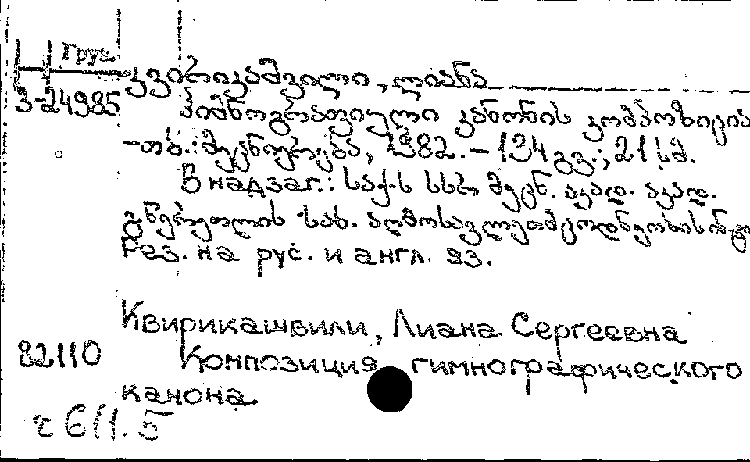 Груз
კვირიკაშვილი, ლიანა
3-24985 ჰიმნოგრაფიული კანონის კომპოზიცია
-თბ.: მეცნიერება, 1982. - 134 გვ.; 21 სმ.
В надзаг.: საქ. სსრ მეცნ. აკად. აკად.
გ. წერეთლის სახ. აღმოსავლეთმცოდნეობის
Рез. на рус. и англ. яз.
Квирикашвили, Лиана Сергеевна
82110 Композиция гимнографического
канона
г 6/1. 5